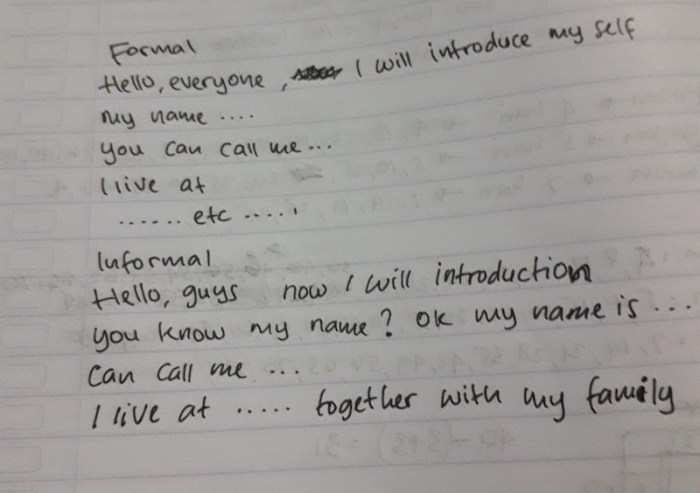 Formal
Hello, everyone, I will introduce my self
my name ....
you can call me ...
I live at
...... etc .....
Informal
Hello, guys now I will introduction
you know my name? ok my name is ...
can call me ...
I live at ..... together with my family